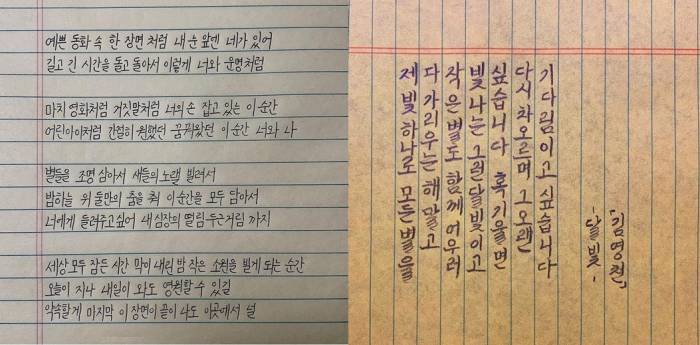 예쁜 동화 속 한 장면 처럼 내 눈 앞엔 네가 있어
길고 긴 시간을 돌고 돌아서 이렇게 너와 운명처럼
마치 영화처럼 거짓말처럼 너의 손 잡고 있는 이 순간
어린아이처럼 간절히 원했던 꿈꿔왔던 이 순간 너와 나
별들을 조명 삼아서 새들의 노랠 빌려서
밤하늘 위 둘만의 춤을 춰 이 순간을 모두 담아서
너에게 들려주고싶어 내 심장의 떨림 두근거림 까지
세상 모두 잠든 시간 막이 내린 밤 작은 소원을 빌게 되는 순간
오늘이 지나 내일이 와도 영원할 수 있길
약속할게 마지막 이 장면이 끝이 나도 이곳에서 널
제 빛 하나로 모든 별을
다 가리우는 해 말고
작은 별도 함께 어우러
빛나는 그런 달빛이고
싶습니다 혹 기울면
다시 차오르며 그 오랜
기다림이고 싶습니다
-달빛-
「김영천」